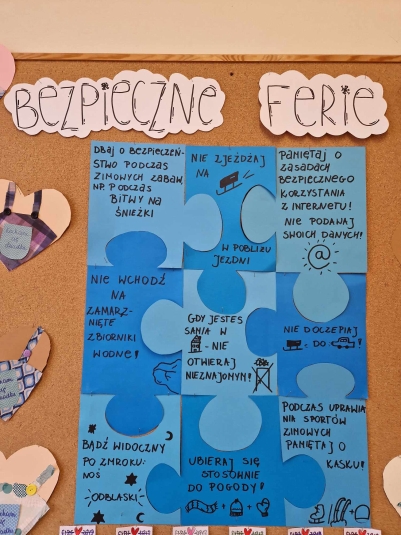 BEZPIECZNE FERIE
DBAJ O BEZPIECZEŃ-
STWO PODCZAS
ZIMOWYCH ZABAW,
NP. PODCZAS
BITWY NA
ŚNIEŻKI
NIE ZJEŻDŻAJ
NA
W POBLIŻU
JEZDNI
PAMIĘTAJ O
ZASADACH
BEZPIECZNEGO
KORZYSTANIA
Z INTERNETU!
NIE PODAWAJ
SWOICH DANYCH!
@
NIE WCHODŹ
NA
ZAMARZ-
NIĘTE
ZBIORNIKI
WODNE!
GDY JESTEŚ
SAM/A W
- NIE
OTWIERAJ
NIEZNAJOMYM!
NIE DOCZEPIAJ
- DO !
BĄDŹ WIDOCZNY
PO ZMROKU:
NOŚ
ODBLASKI
UBIERAJ SIĘ
STOSOWNIE
DO POGODY!
+ +
PODCZAS UPRAWIA
NIA SPORTÓW
ZIMOWYCH
PAMIĘTAJ O
KASKU!